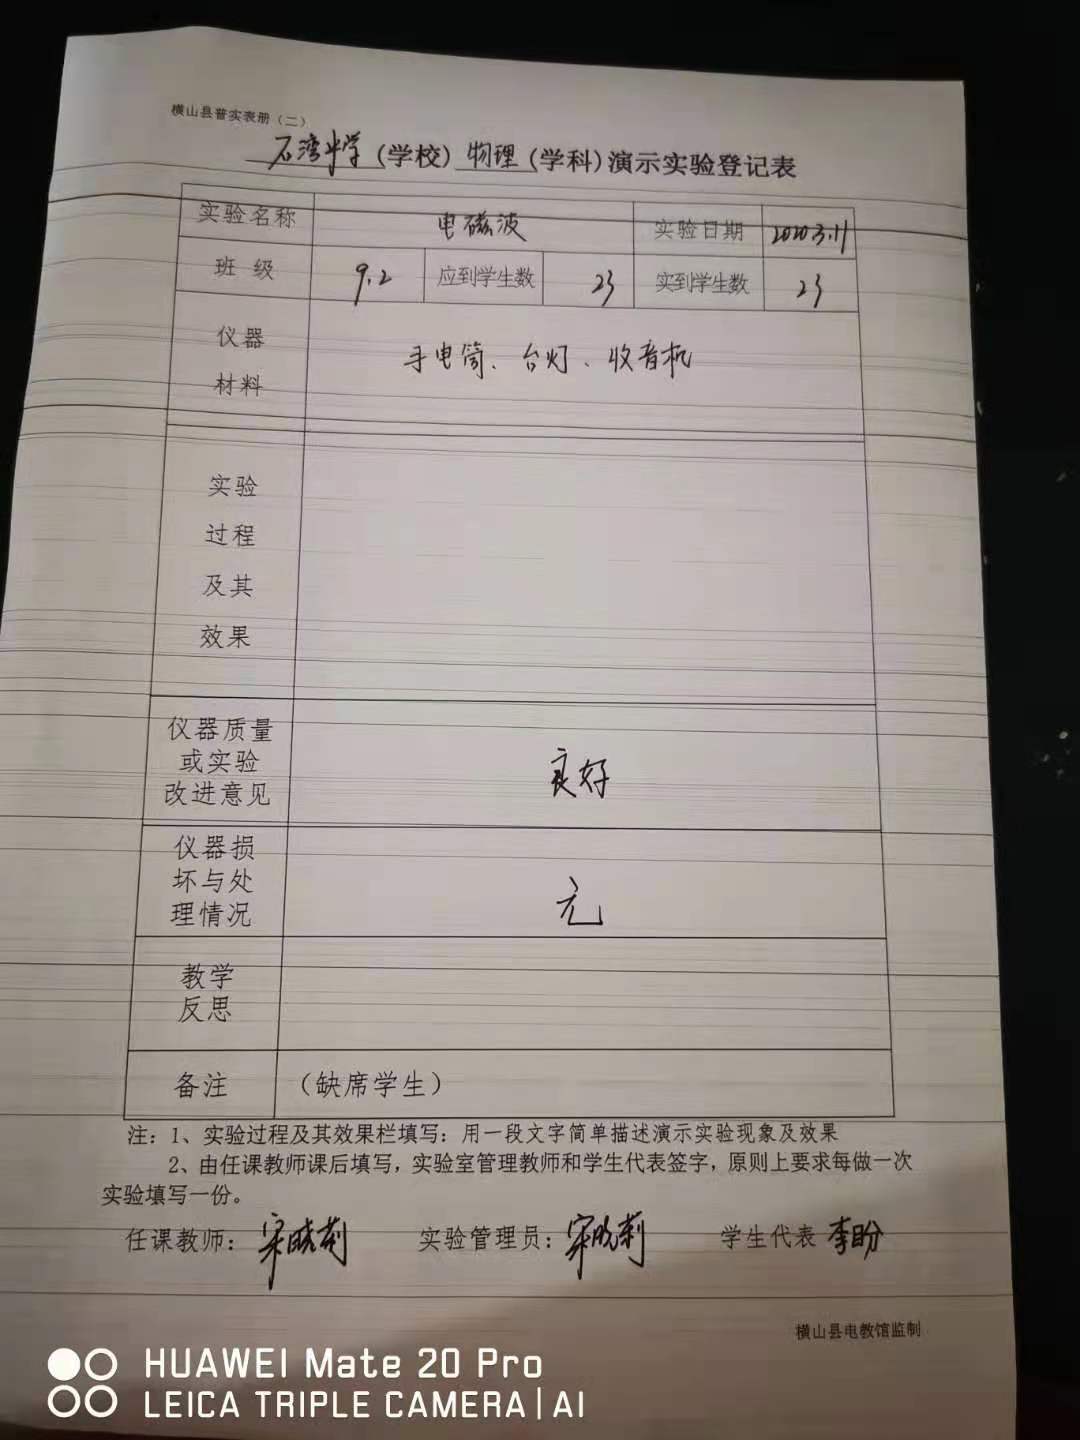 横山县普实表册（二）
石湾中学（学校）物理（学科）演示实验登记表
实验名称 电磁波 实验日期 2020.3.11
班 级 9.2 应到学生数 23 实到学生数 23
仪器
材料
手电筒、台灯、收音机
实验
过程
及其
效果
仪器质量
或实验
改进意见
良好
仪器损
坏与处
理情况
无
教学
反思
备注 （缺席学生）
注：1、实验过程及其效果栏填写：用一段文字简单描述演示实验现象及效果
2、由任课教师课后填写，实验室管理教师和学生代表签字，原则上要求每做一次
实验填写一份。
任课教师：宋晓莉 实验管理员：宋晓莉 学生代表 李盼
横山县电教馆监制
HUAWEI Mate 20 Pro
LEICA TRIPLE CAMERA | AI